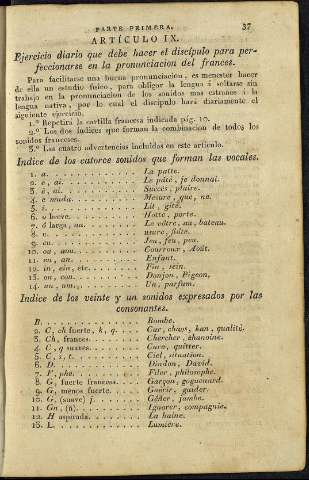 PARTE PRIMERA. 37
ARTÍCULO IX.
Ejercicio diario que debe hacer el discípulo para per-
feccionarse en la pronunciacion del frances.
Para facilitarse una buena pronunciacion, es menester hacer
de ella un estudio físico, para obligar la lengua á soltarse sin
trabajo en la pronunciacion de los sonidos mas estraños á la
lengua nativa, por lo cual el discípulo hará diariamente el
siguiente ejercicio.
1.º Repetira la cartilla francesa indicada pág. 10.
2.º Los dos índices que forman la combinacion de todos los
sonidos franceses.
3.º Las cuatro advertencias incluidas en este artículo.
Indice de los catorce sonidos que forman las vocales.
1. a. La patte.
2. é, ai. Le pâté, je donnai.
3. è, ai. Succès, plaire.
4. e muda. Mesure, que, ne.
5. i. Lit, gîte.
6. o breve. Hotte, porte.
7. ó larga, au. Le vôtre, au, bateau.
8. u.
9. eu. Jeu, feu, peu.
10. ou, aou. Courroux, Août.
11. en, an. Enfant.
12. in, ein, etc. Fin, sein.
13. on, eon. Donjon, Pigeon.
14. un, um. Un, parfum.
Indice de los veinte y un sonidos expresados por las
consonantes.
B. Bombe.
2. C, ch fuerte, k, q. Car, chaos, kan, qualité.
3. Ch, frances. Chercher, chanoine.
4. C, q suaves. Cure, quitter.
5. C, s, t. Ciel, situation.
6. D. Dindon, David.
7. F, phe. Filer, philosophe.
8. G, fuerte francesa. Garçon, goguenard.
9. G, menos fuerte. Guérir, guider.
10. G, (suave) j. Gêner, jambe.
11. Gn, (ñ). Ignorer, compagnie.
12. H aspirada. La haine.
13. L. Lumière.